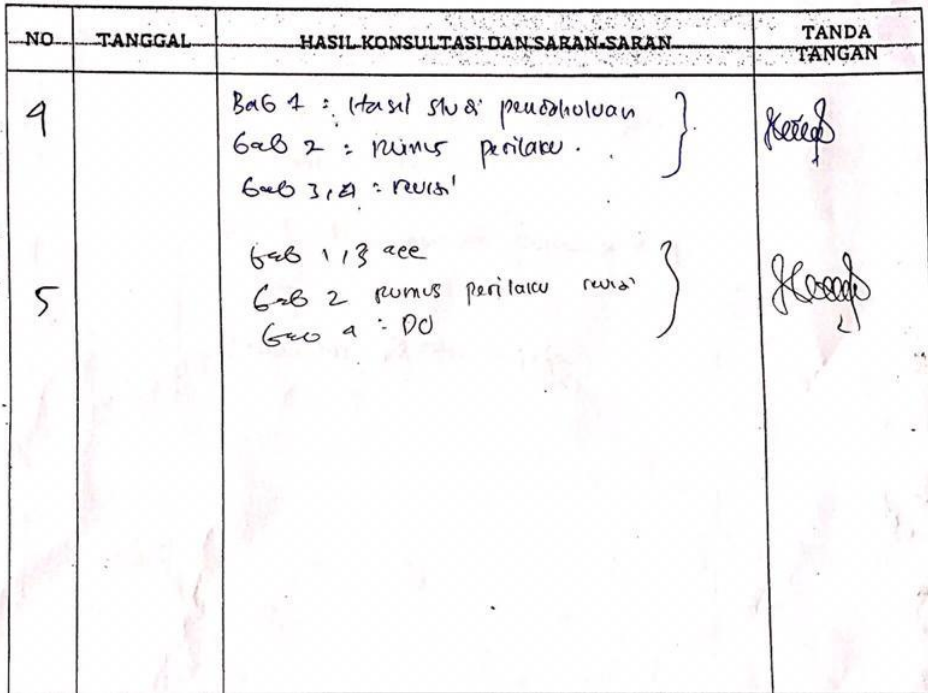 NO TANGGAL HASIL KONSULTASI DAN SARAN-SARAN TANDA TANGAN
4 Bab 1 : Hasil studi pendahuluan
Bab 2 : rumus perilaku .
Bab 3,4 : revisi
Bab 1,3 acc
5 Bab 2 rumus perilaku revisi
Bab 4 : DO